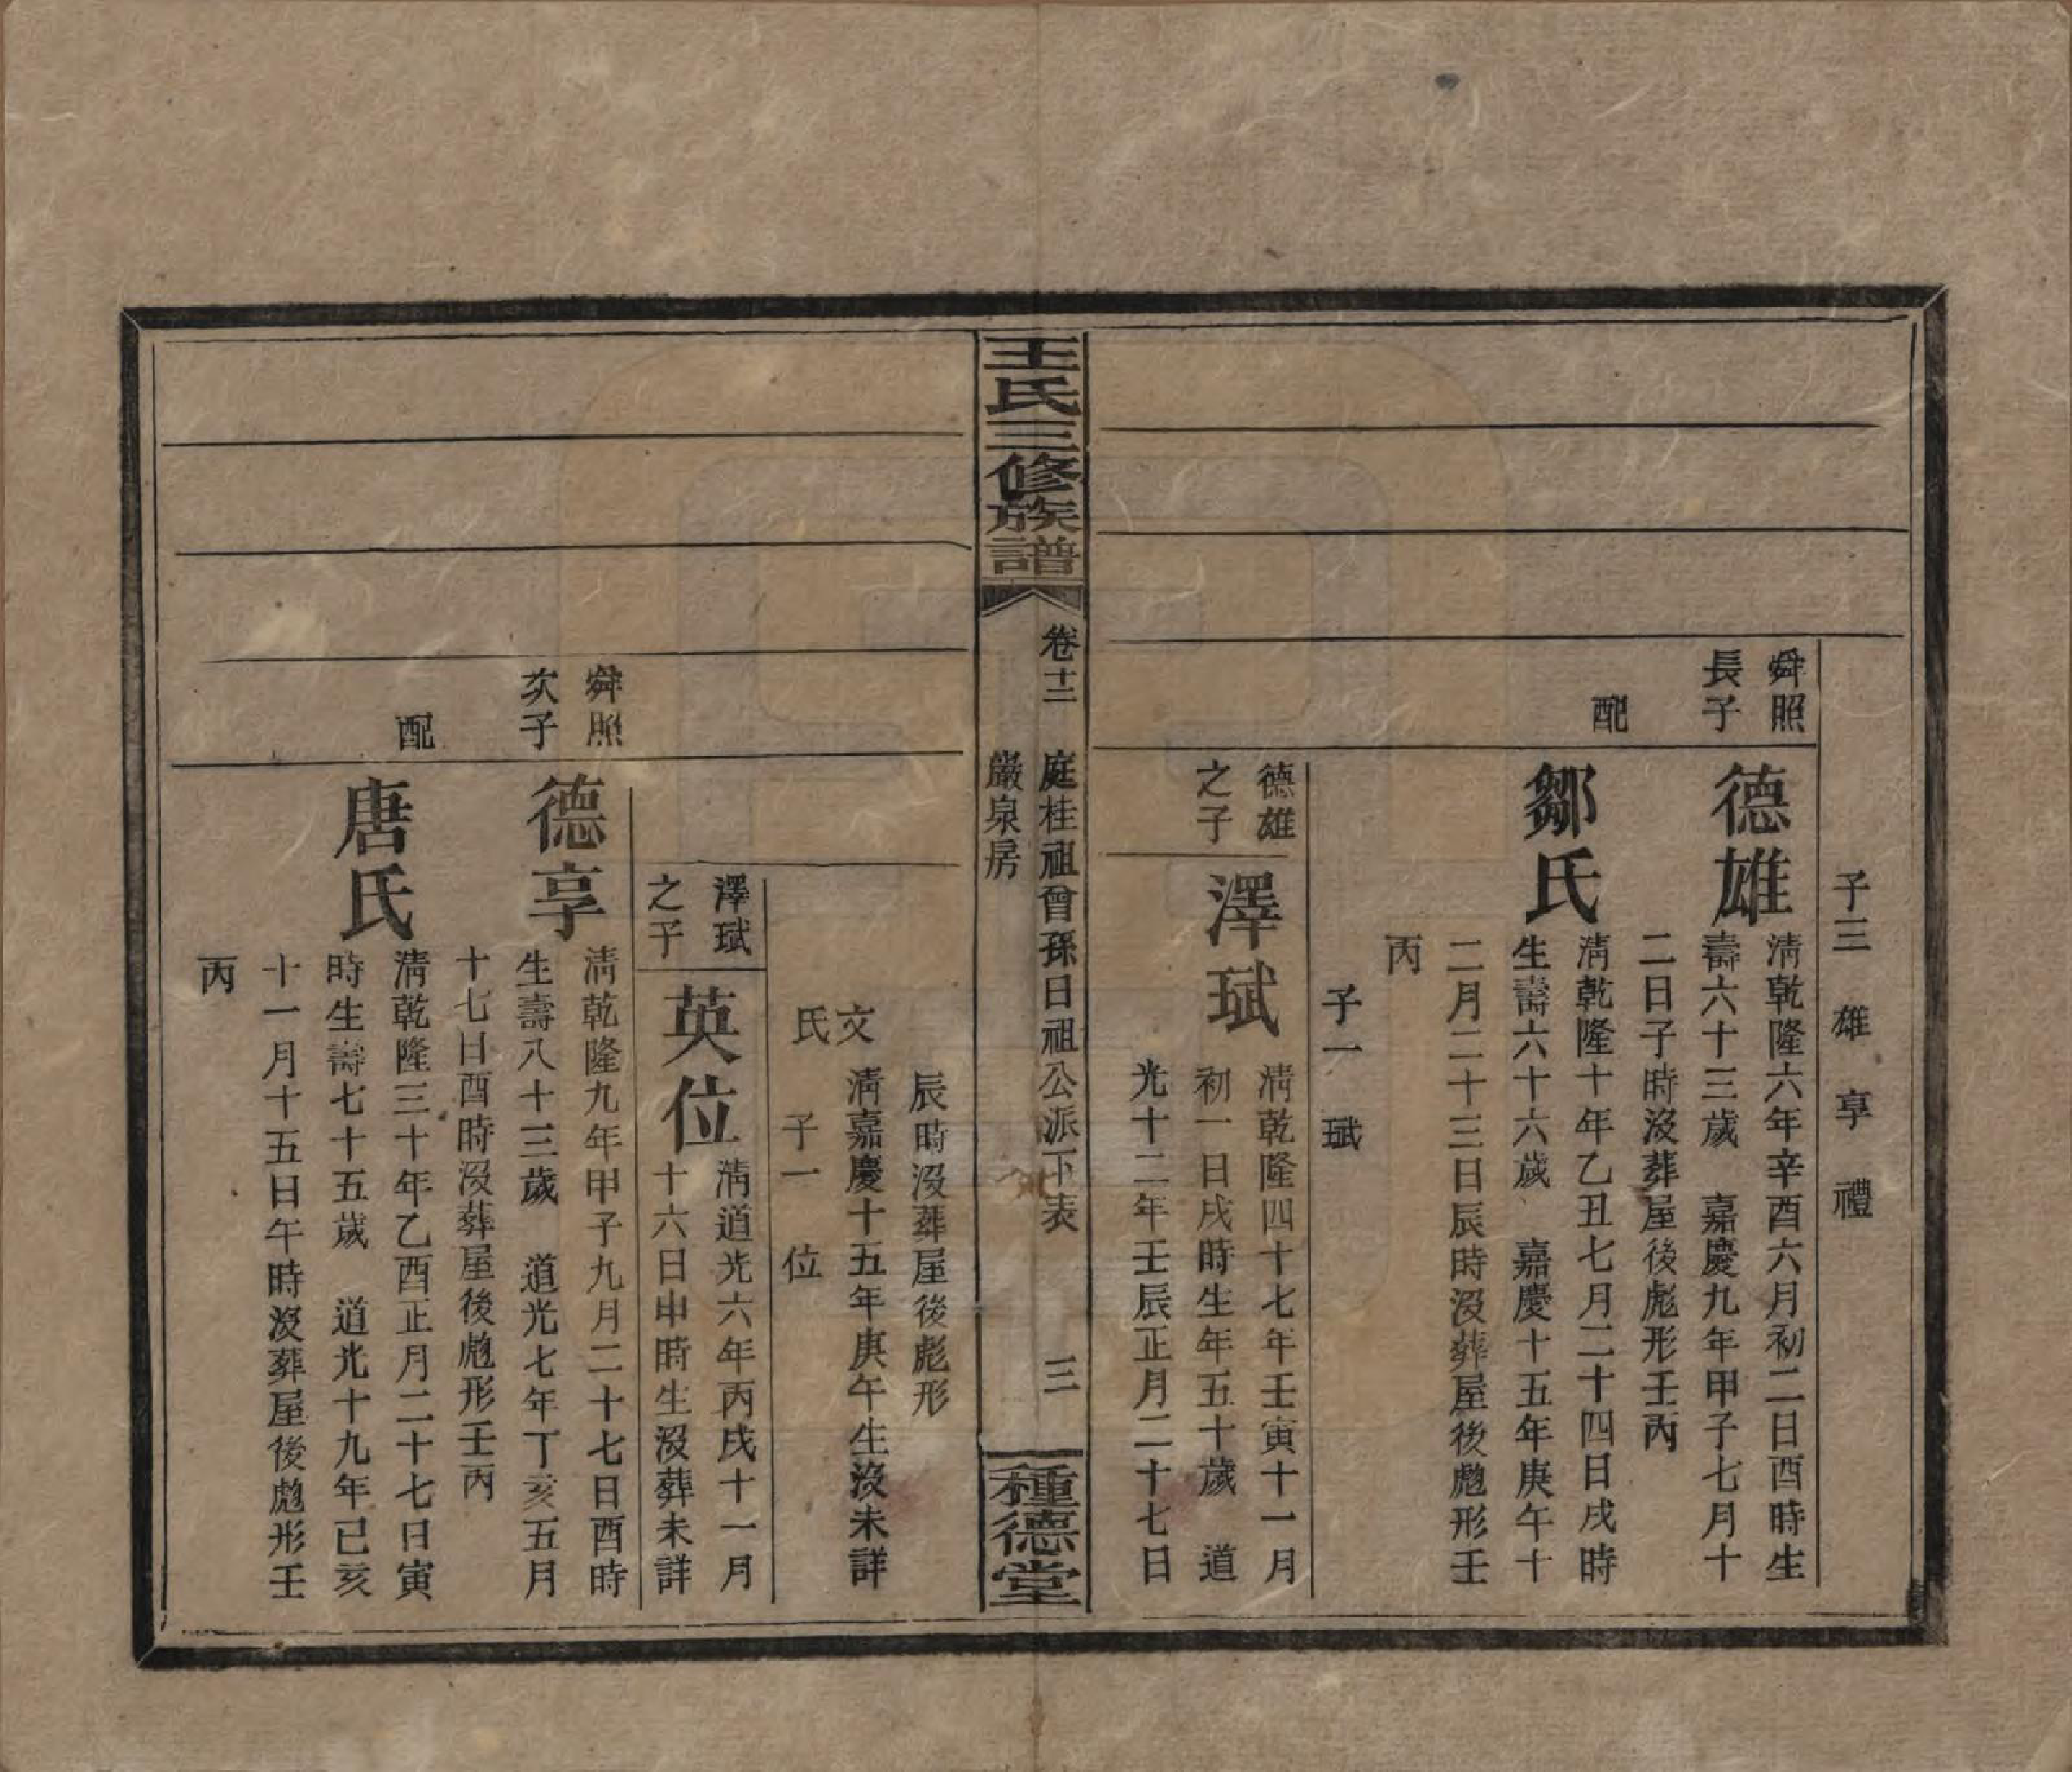 子三 雄 享 禮
舜照
長子
德雄
清乾隆六年辛酉六月初二日酉時生
壽六十三歲 嘉慶九年甲子七月十
二日子時沒葬屋後彪形壬丙
配
鄒氏
清乾隆十年乙丑七月二十四日戌時
生壽六十六歲 嘉慶十五年庚午十
二月二十三日辰時沒葬屋後彪形壬
丙
子一 珷
德雄
之子
澤珷
清乾隆四十七年壬寅十一月
初一日戌時生年五十歲 道
光十二年壬辰正月二十七日
王氏三修族譜
卷十二 庭桂祖曾孫日祖公派下表 三
巖泉房
種德堂
辰時沒葬屋後彪形
文氏
清嘉慶十五年庚午生沒未詳
子一 位
澤珷
之子
英位
清道光六年丙戌十一月
十六日申時生沒葬未詳
舜照
次子
德享
清乾隆九年甲子九月二十七日酉時
生壽八十三歲 道光七年丁亥五月
十七日酉時沒葬屋後彪形壬丙
配
唐氏
清乾隆三十年乙酉正月二十七日寅
時生壽七十五歲 道光十九年己亥
十一月十五日午時沒葬屋後彪形壬
丙